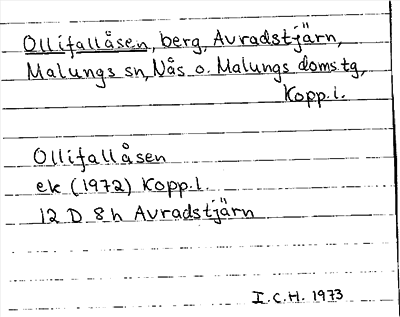 Ollifallåsen, berg, Avradstjärn,
Malungs sn, Nås o. Malungs doms.tg,
Kopp.l.
Ollifallåsen
ek (1972) Kopp.l.
12 D 8h Avradstjärn
I.C.H. 1973